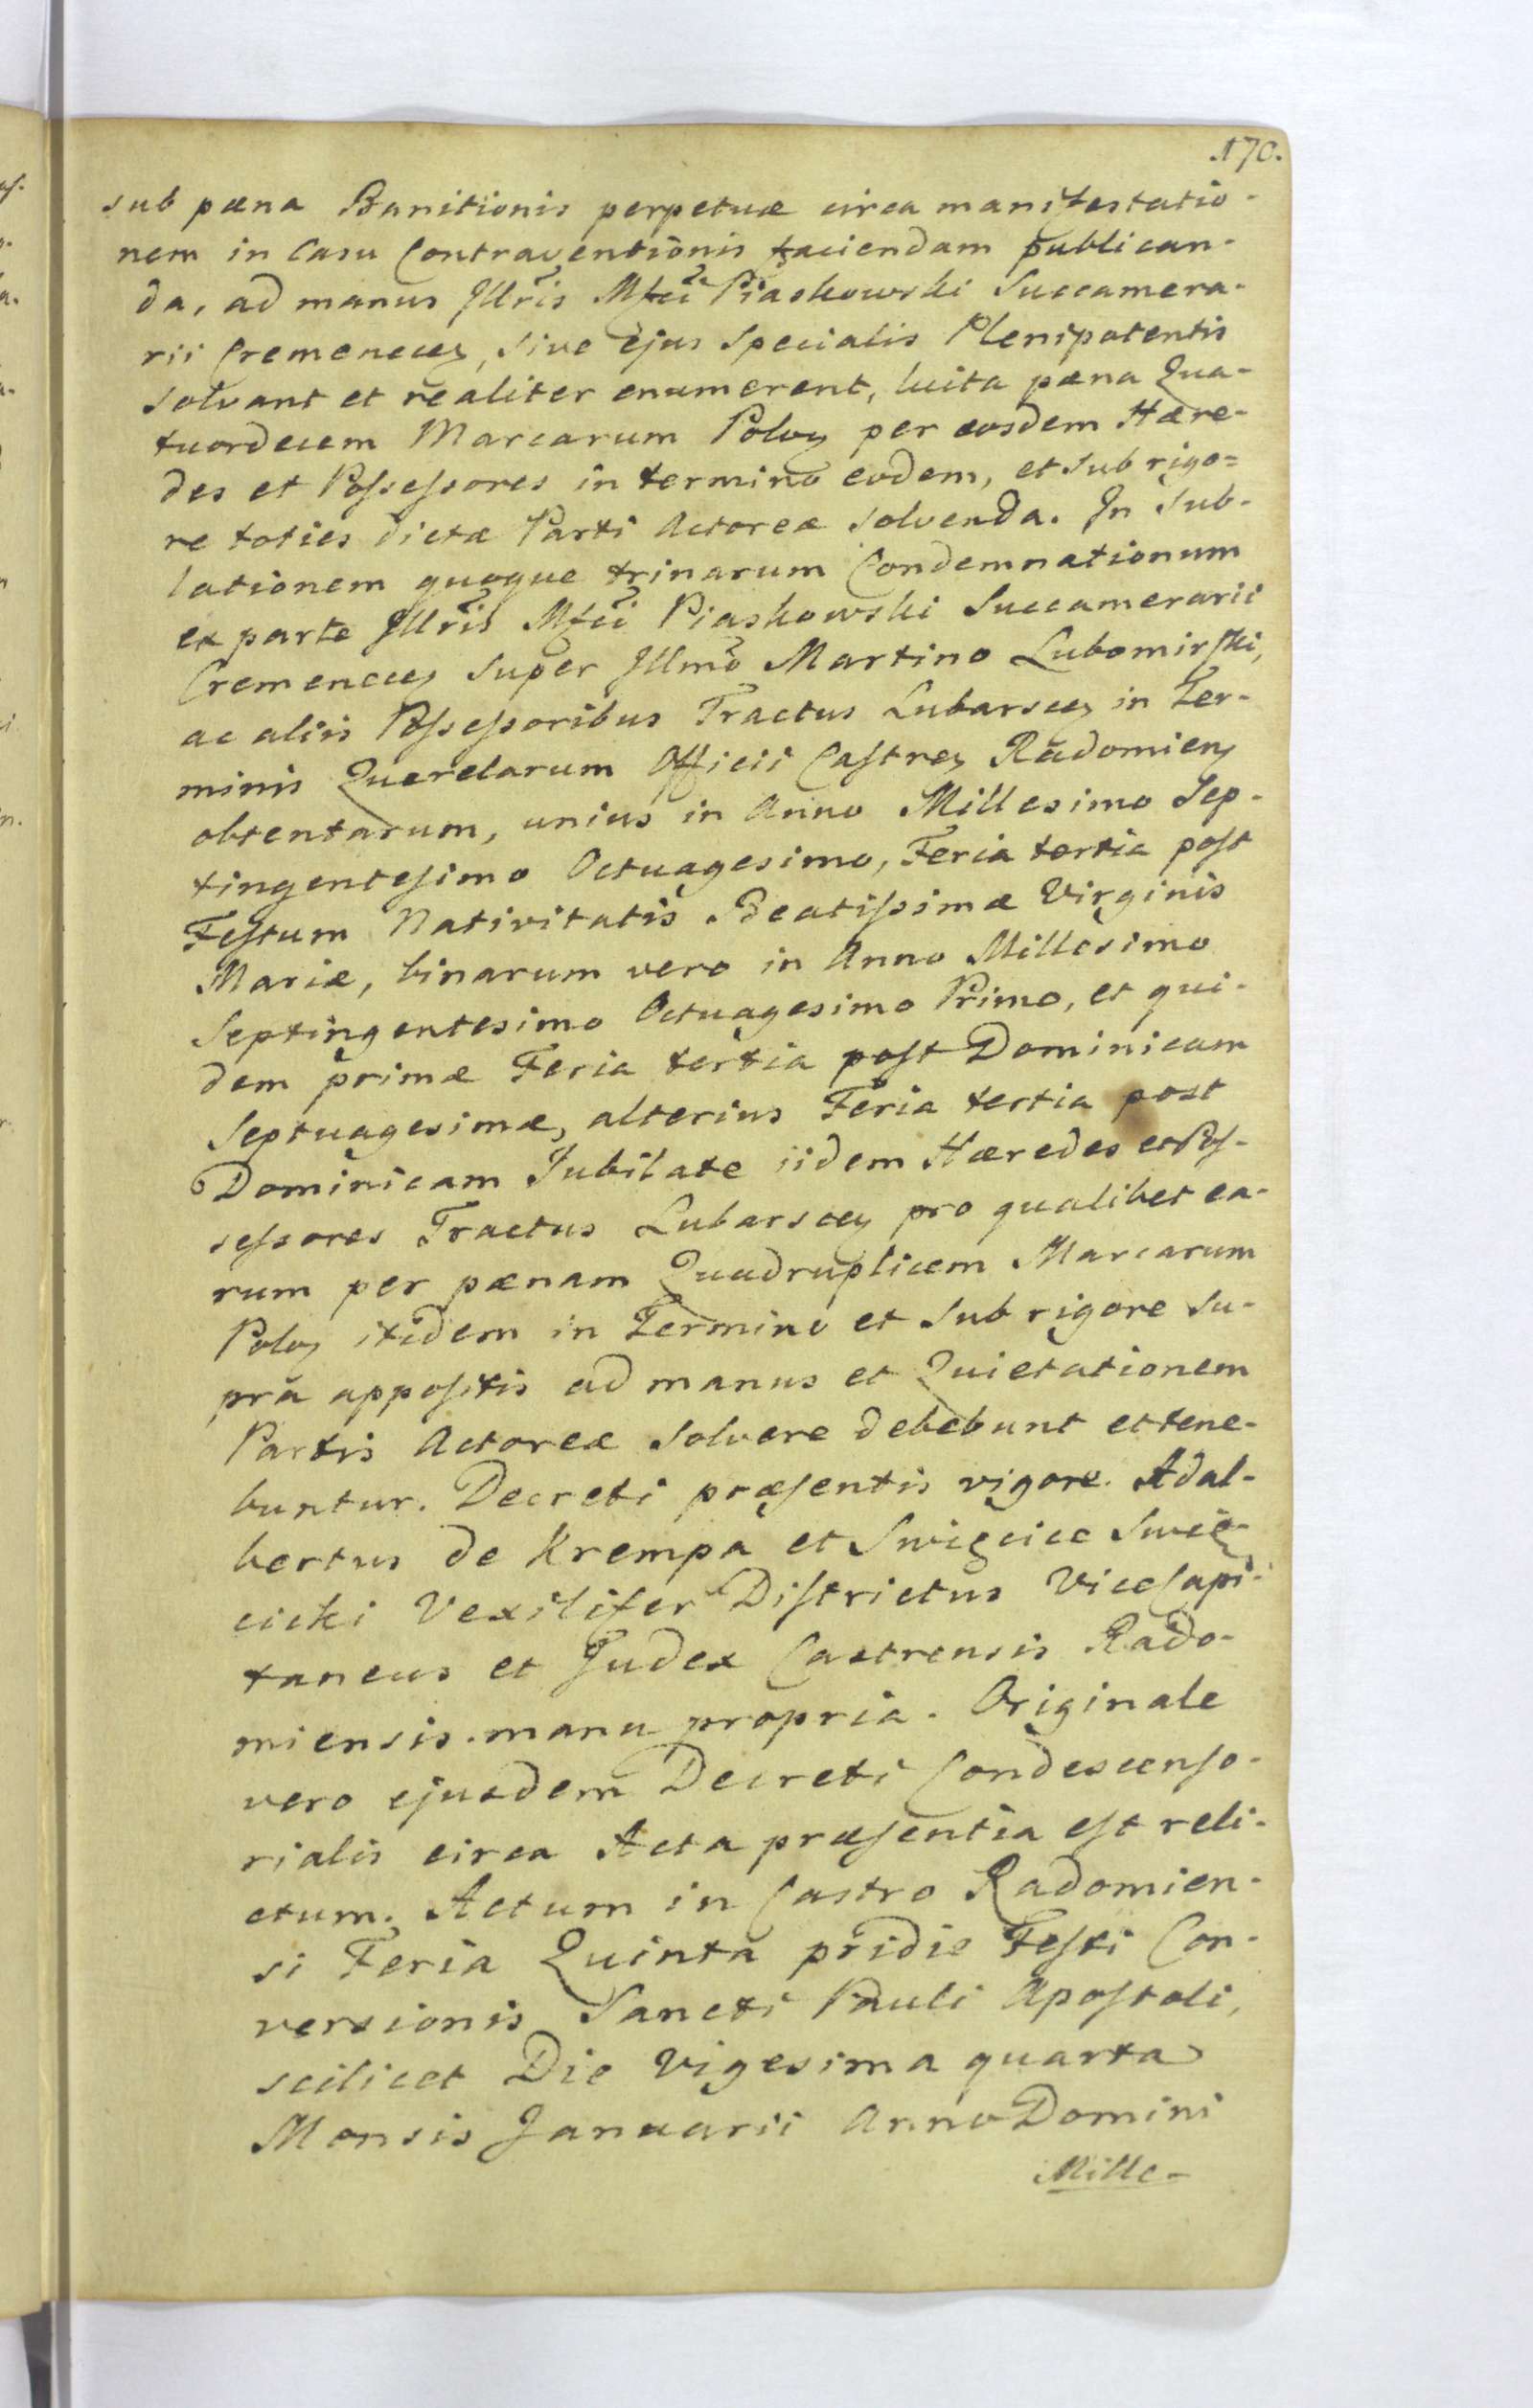 170.
sub pæna Banitionis perpetuæ circa manifestatio-
nem in Casu Contraventionis faciendam publican-
da, ad manus Jllris Mfci Piaskowski Succamera-
rii Cremenecen, sive ejus Specialis Plenipotentis
Solvant et realiter enumerent, luita pæna Qua-
tuordecem Marcarum Polon per eosdem Hære-
des et Poſseſsores in termino eodem, et sub rigo=
re toties dictæ Parti Actoreæ Solvenda. Jn Sub-
lationem quoque trinarum Condemnationum
ex parte Jllris Mfci Piaskowski Succamerarii
Cremenecen Super Jllmo Martino Lubomirſki,
ac aliis Poſseſsoribus Tractus Lubarscen in Ter-
minis Querelarum Officii Caſtren Radomien
obtentarum, unius in Anno Millesimo Sep-
tingenteſimo Octuagesimo, Feria tertia poſt
Feſtum Nativitatis Beatiſsimæ Virginis
Mariæ, binarum vero in Anno Millesimo
Septingentesimo Octuagesimo Primo, et qui-
dem primæ Feria tertia poſt Dominicam
Septuagesimæ, alterius Feria tertia post
Dominicam Jubilate iidem Hæredes et Poſ-
seſsores Tractus Lubarscen pro qualibet ea-
rum per pænam Quadruplicem Marcarum
Polon itidem in Termino et Sub rigore Su-
pra appoſitis ad manus et Quietationem
Partis Actoreæ Solvere debebunt et tene-
buntur. Decreti præſentis vigore. Adal-
bertus de Krempa et Swięcice Swię-
cicki Vexilifer Diſtrictus ViceCapi-
taneus et Judex Castrensis Rado-
miensis. manu propria. Originale
vero ejusdem Decreti Condescenſo-
rialis circa Acta præſentia eſt reli-
ctum. Actum in Castro Radomien-
si Feria Quinta pridie Feſti Con-
versionis Sancti Pauli Apoſtoli,
scilicet Die Vigesima quarta
Mensis Januarii Anno Domini
Mille-